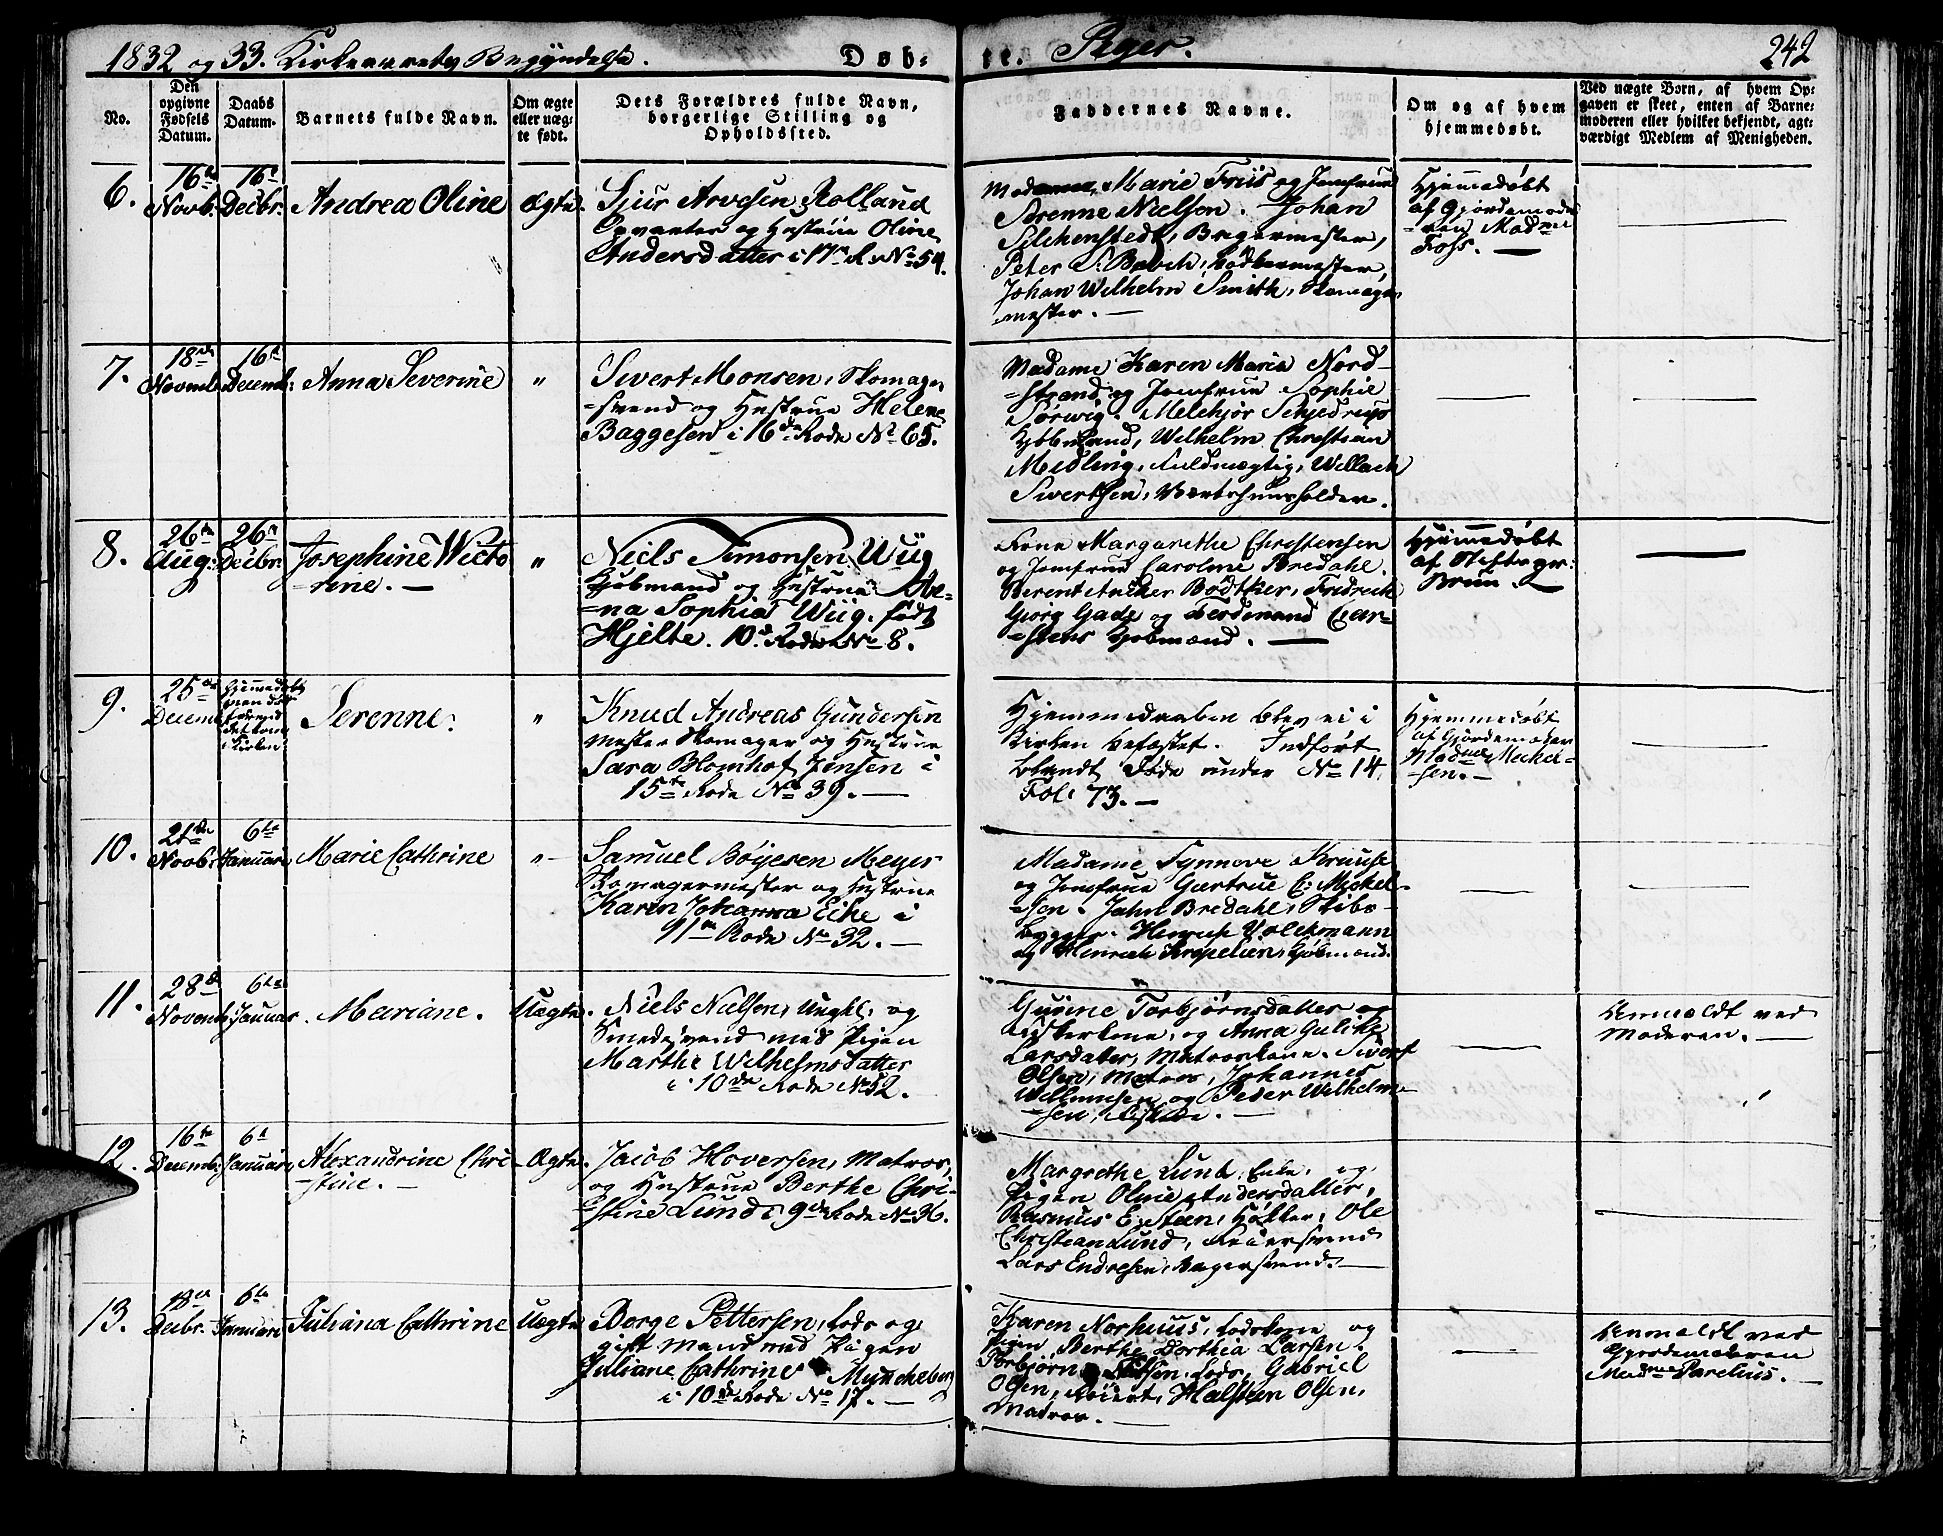 1832 og 33. Kirkeaarets Begyndelse. Døb-
te. Piger. 242
No.
Den opgivne Fødsels Datum.
Daabs Datum.
Barnets fulde Navn.
Om ægte eller uægte født.
Dets Forældres fulde Navn, borgerlige Stilling og Opholdssted.
Faddernes Navne.
Om og af hvem hjemmedøbt.
Ved uægte Børn, af hvem Op-
gaven er skeet, enten af Barne-
moderen eller hvilket bekjendt, agt-
værdigt Medlem af Menigheden.
6.
16de Novb.
16de Decbr.
Andrea Oline
Ægte.
Sjur Arvesen Rolland
og Hustrue Oline
Andersdatter i 17de R. No 54.
Madame Marie Friis og Jomfrue
Sørenne Nielsen. Johan
Bagermester,
Peter Bødkermester,
Johan Wilhelm Smith, Skomager
mester. —
Hjemmedøbt
af Gjordemode
-ren Madme
Foss. —
7.
18de Novemb.
16de Decemb.
Anna Severine
"
Sivert Monsen, Skomager
-svend og Hustrue Helene
Baggesen i 16de Rode No 65.
Madame Karen Maria Nord-
-strand og Jomfrue Sophie
Sørwig. Melchjor Schjedrup
Kjøbmand, Wilhelm Christian
Midling, Fuldmægtig, Willach
Sivertsen, Vertshuusholder.
8.
26de Aug:
26de Decbr.
Josephine Victo
-rine. —
"
Niels Simonsen Wiig
Kjøbmand og Hustrue
-na Sophia Wiig, født
Hjelte. 10de Rode No 8.
Kone Margarethe Christensen
og Jomfrue Caroline Bredahl.
Berent Ancher Bødtker, Fridrich
Gjørg Gade og Ferdinand Car-
-stens Kjøbmænd. —
Hjemmedøbt
af Stiftsp:
Brun.
9.
25de Decemb.
Hjemmedøbt
men døde
førend
det kom
i Kirken
Serenne.
"
Knud Andreas Gundersen
mester Skomager og Hustrue
Sara Blomhof Jensen i
15de Rode No 39. —
Hjemmedaaben blev ei i
Kirken befæstet. Indført
blandt Døde under No 14.
Fol: 73. —
Hjemmedøbt
af Gjordemoderen
Madme Mickel-
-sen. —
10.
21de Novb.
6te Januari
Marie Cathrine
"
Samuel Böyesen Meyer
Skomagermester og Hustrue
Karen Johanna Eike i
91de Rode No 32. —
Madame Synnove Krause
og Jomfrue Gjertrue C: Mickel-
-sen. Jahn Bredahl, Skibs-
bygger. Hinrich Volckmann
og Henrich Krepelien, Kjøbmænd.
11.
28de Novemb.
6te Januar
Mariane.
Uægte.
Niels Nielsen, Ungkl. og
Smedesvend med Pigen
Marthe Wilhelmsdatter
i 10de Rode No 52.
Gurine Torbjørnsdatter og
Fiskerkone, og Anna Gulike
Larsdatter, Matroskone. Sivert
Olsen, Matros, Johannes
Willumsen og Peder Wilhelm-
-sen, Fiskere. —
Anmeldt ved
Moderen. —
12.
16de Decemb.
6te Januar
Alexandrine Chri-
-stine. —
Ægte.
Jacob Hoversen, Matros,
og Hustrue Berthe Chri-
-stine Lund i 9de Rode No 36.
Margrethe Lund, Enke, og
Pigen Oline Andersdatter,
Rasmus E. Steen, Høkker, Ole
Christian Lund,
Lars Endresen, Bagersvend. —
13.
18de Decbr.
6te Januari
Juliana Cathrine
Uægte
Børge Pettersen, Lods og
gift Mand med Pigen
Juliane Cathrine Müncheberg
i 10de Rode No 17. —
Karen Norhuus, Lodskone og
Pigen Berthe Dorthia Larsen.
Torbjørn Lods, Gabriel
Olsen, Halsten Olsen,
Matros. —
Anmeldt ved
Gjordemoderen
Madme Parelius. —